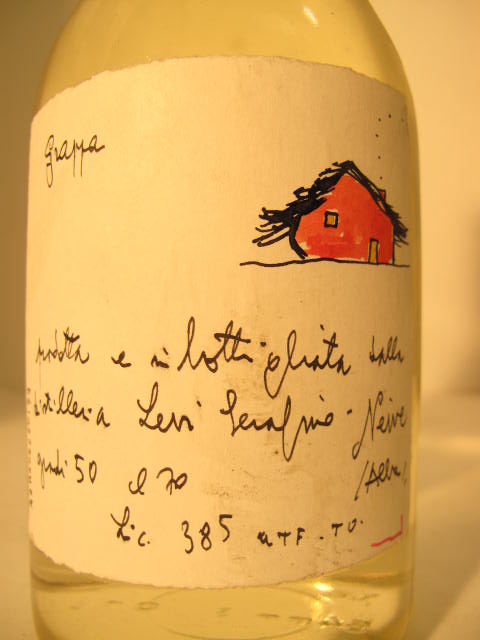 Grappa
prodotta e imbottigliata dalla
distilleria Levi Serafino - Neive
gradi 50 cl 70 (Alba)
Lic. 385 UTF. TO.